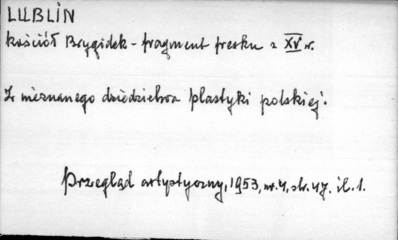 LUBLIN
kościół Brygidek - fragment fresku z XV w.
Z nieznanego dziedzictwa plastyki polskiej.
Przegląd artystyczny, 1953, nr.4, str.47. il.1.